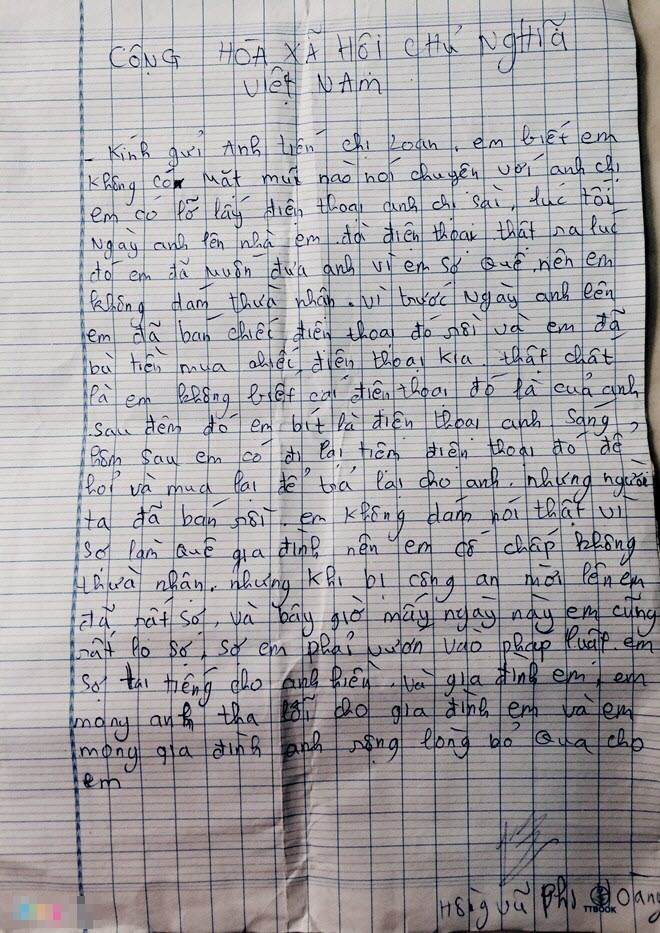 CỘNG HÒA XÃ HỘI CHỦ NGHĨA
VIỆT NAM
- Kính gửi Anh tiến chị Loan. em biết em
không có mặt mũi nào nói chuyện với anh chị
em có lỡ lấy điện thoại anh chị sài, lúc tối
Ngày anh lên nhà em đòi điện thoại thật ra lúc
đó em đã muốn đưa anh vì em sợ quê nên em
không dám thừa nhận. vì trước ngày anh lên
em đã bán chiếc điện thoại đó rồi và em đã
bù tiền mua chiếc điện thoại kia. thật chất
là em không biết cái điện thoại đó là của anh
sau đêm đó em bít là điện thoại anh sang
hôm sau em có đi lại tiệm điện thoại đó để
hỏi và mua lại để trả lại cho anh. nhưng người
ta đã bán rồi. em không dám nói thật vì
sợ làm quê gia đình nên em cố chấp không
thừa nhận. nhưng khi bị công an mời lên em
đã rất sợ, và bây giờ mấy ngày này em cũng
rất lo sợ, sợ em phải vươn vào pháp luật. em
sợ tai tiếng cho anh hiền. và gia đình em, em
mong anh tha lỗi cho gia đình em và em
mong gia đình anh rộng lòng bỏ qua cho
em
vũ phi
TTBOOK